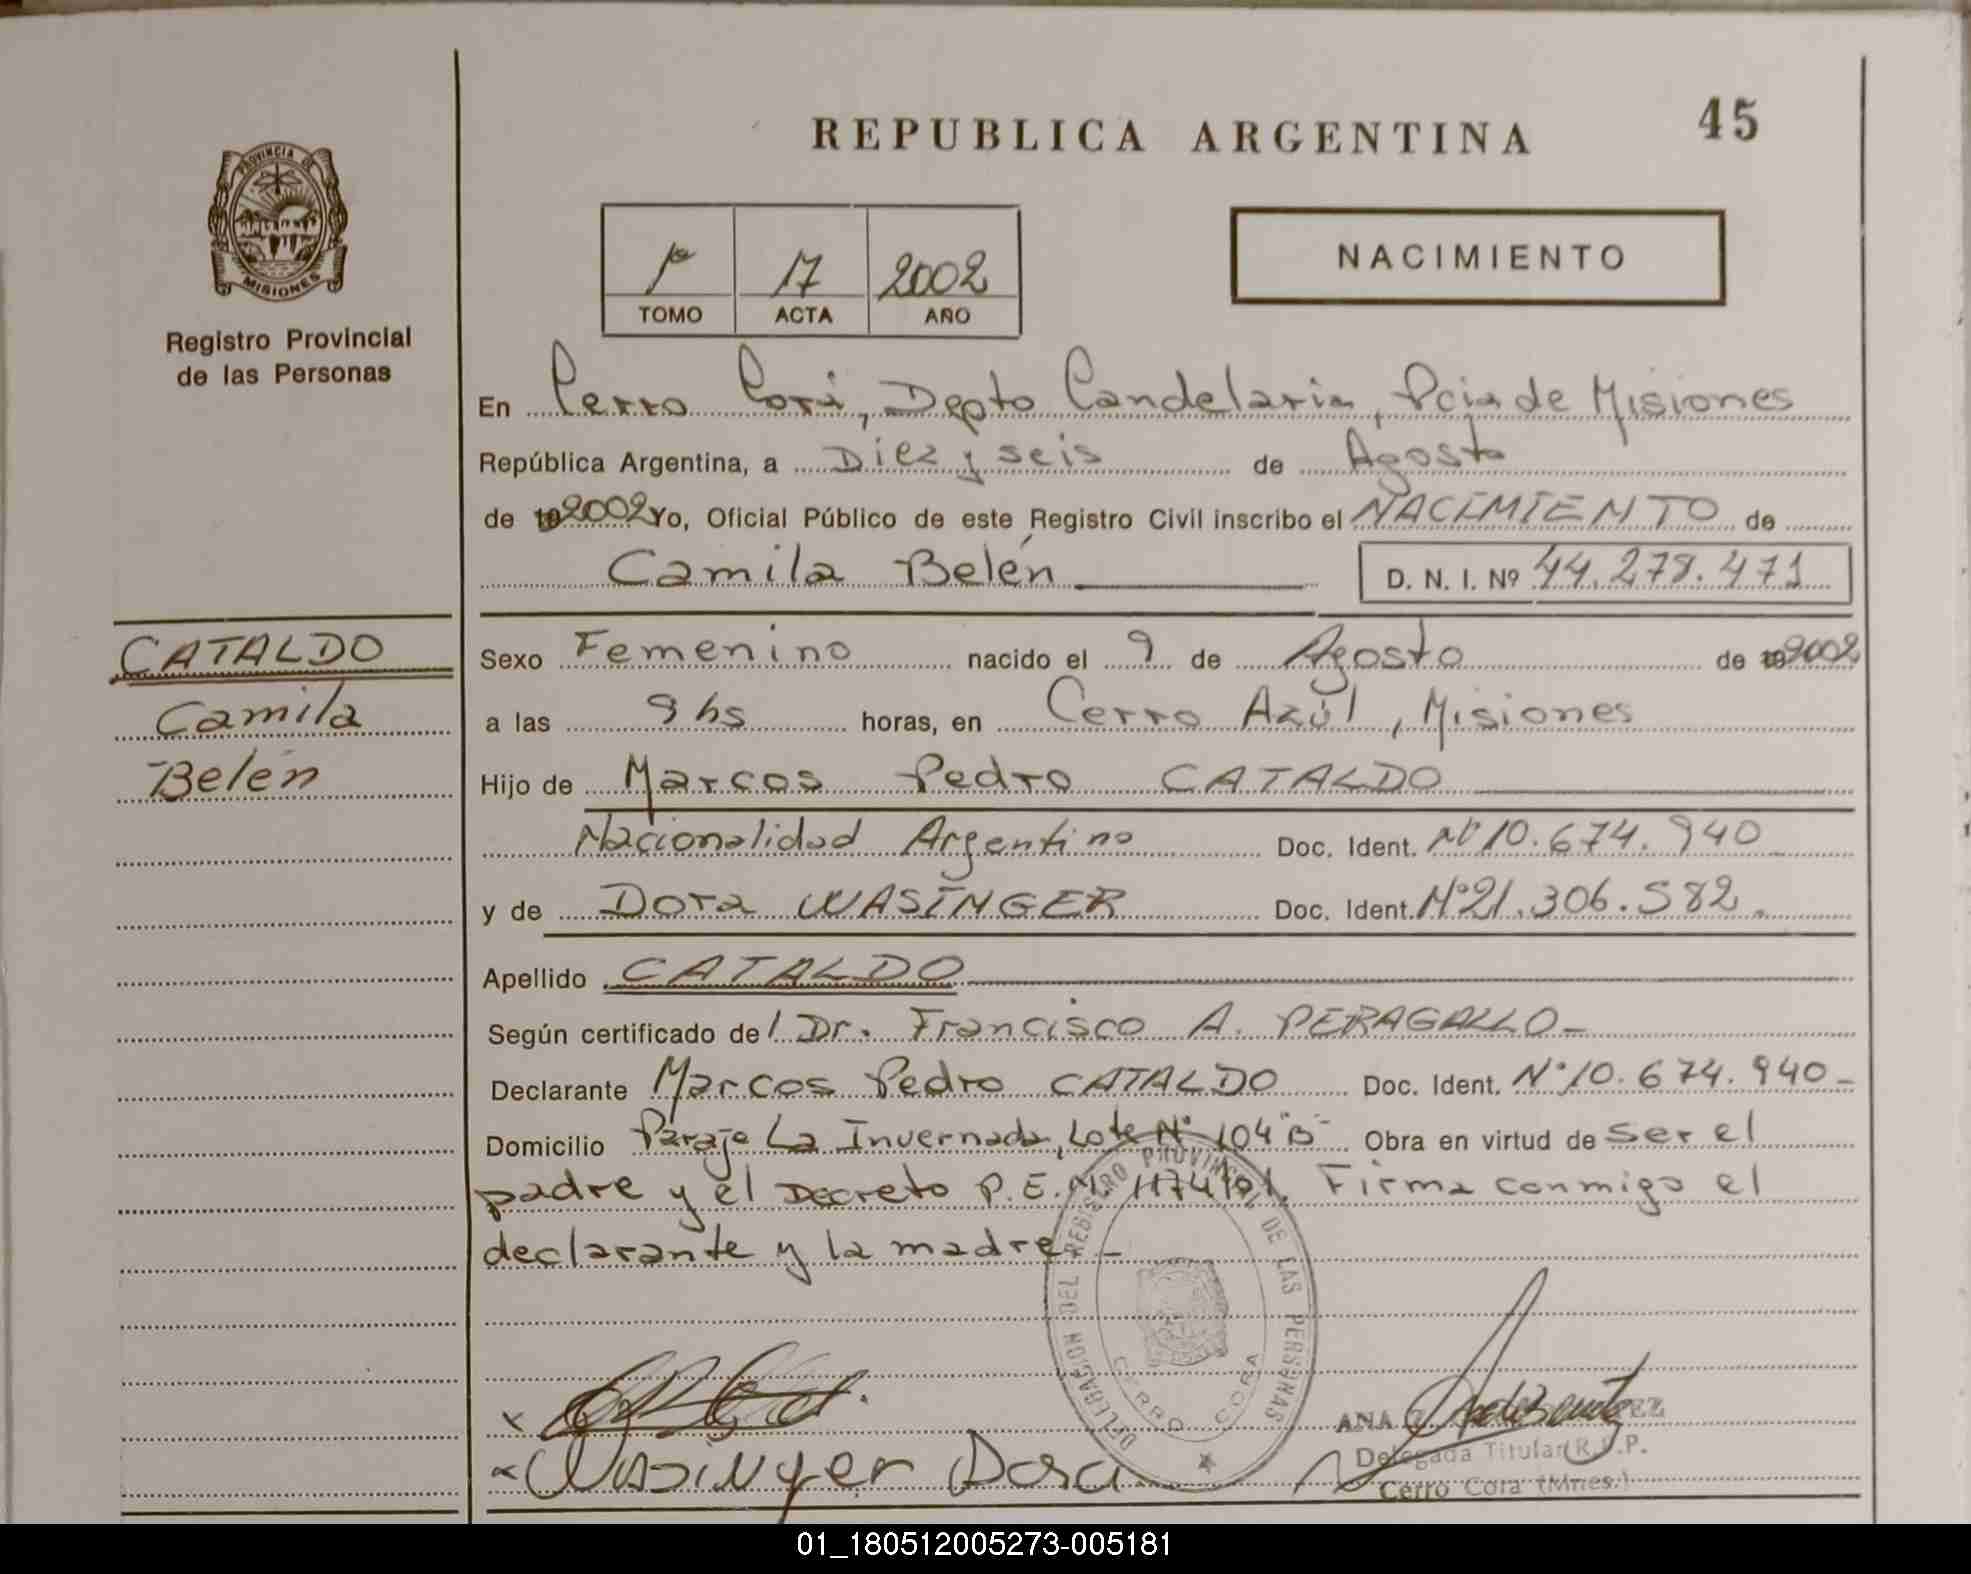 REPUBLICA ARGENTINA
45
PROVINCIA DE
MISIONES
Registro Provincial
de las Personas
1º 17 2002
TOMO ACTA AÑO
NACIMIENTO
En Cerro Corá, Depto Candelaria, Pcia de Misiones
República Argentina, a Diez y seis de Agosto
de 2002 Yo, Oficial Público de este Registro Civil inscribo el NACIMIENTO de
Camila Belén D. N. I. Nº 44.278.471
CATALDO
Camila
Belén
Sexo Femenino nacido el 9 de Agosto de 2002
a las 9 hs horas, en Cerro Azúl, Misiones
Hijo de Marcos Pedro CATALDO
Nacionalidad Argentino Doc. Ident. Nº 10.674.940
y de Dora WASINGER Doc. Ident. Nº 21.306.582.
Apellido CATALDO
Según certificado de l Dr. Francisco A. PERAGALLO-
Declarante Marcos Pedro CATALDO Doc. Ident. Nº 10.674.940-
Domicilio Paraje La Invernada, Lote Nº 104"B" Obra en virtud de ser el
padre y el Decreto P.E.N. 1174/01. Firma conmigo el
declarante y la madre.-
DELEGACION DEL REGISTRO PROVINCIAL DE LAS PERSONAS
CERRO CORA
x
x Wasinger Dora
ANA
Delegada Titular R.P.P.
Cerro Corá (Mnes.)
01_180512005273-005181